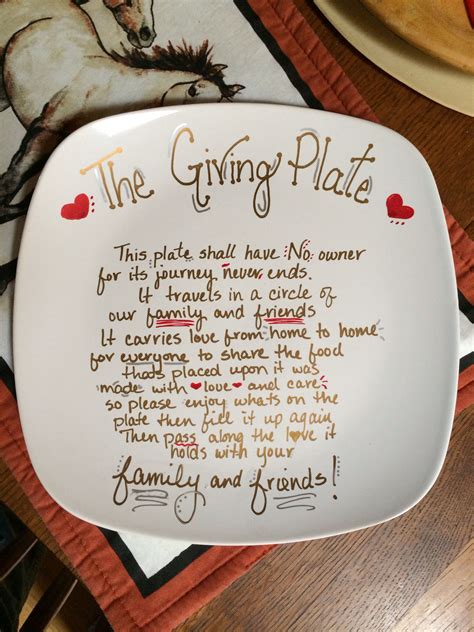 The Giving Plate
This plate shall have No owner
for its journey never ends.
It travels in a circle of
our family and friends
It carries love from home to home
for everyone to share the food
thats placed upon it was
made with love and care
so please enjoy whats on the
plate then fill it up again
Then pass along the love it
holds with your
family and friends!